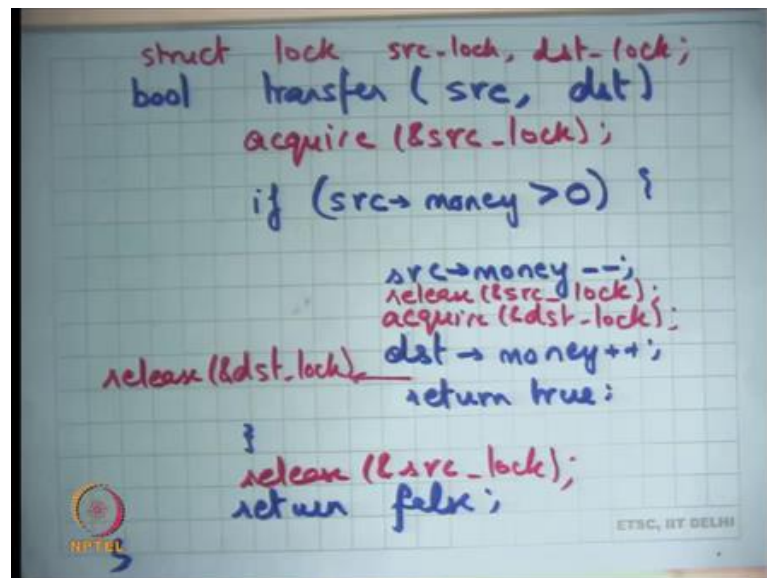 struct lock src-lock, dst-lock;
bool transfer (src, dst)
acquire (&src-lock);
if (src→ money >0) {
src→money --;
release (&src-lock);
acquire (&dst-lock);
dst → money++;
release (&dst-lock);
return true;
}
release (&src-lock);
return false;
}
NPTEL
ETSC, IIT DELHI